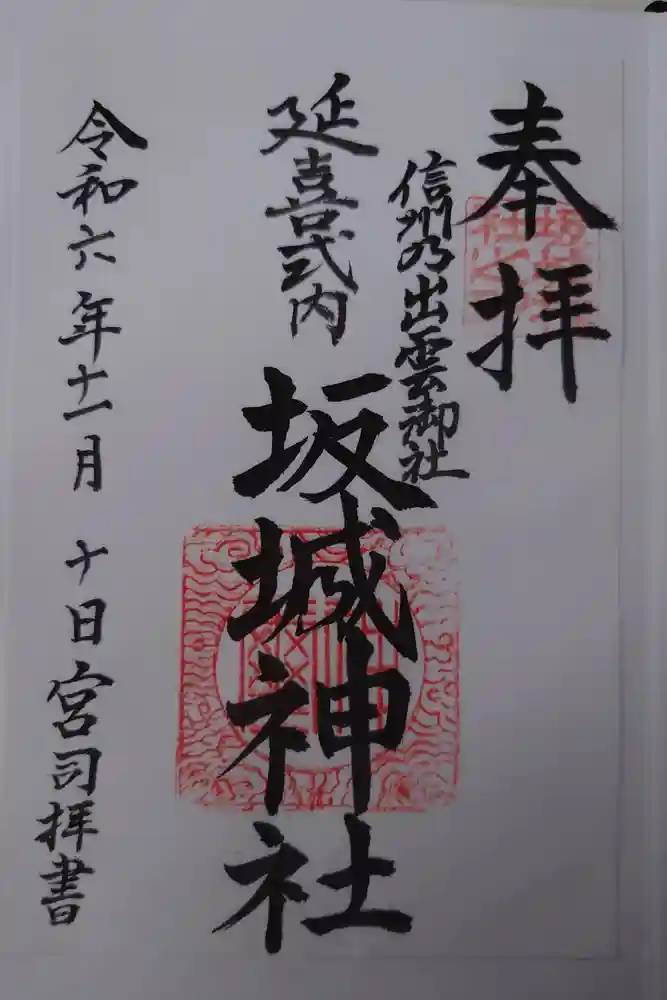 奉拝
信州乃出雲御社
延喜式内
坂城神社
令和六年十一月 十日宮司拝書